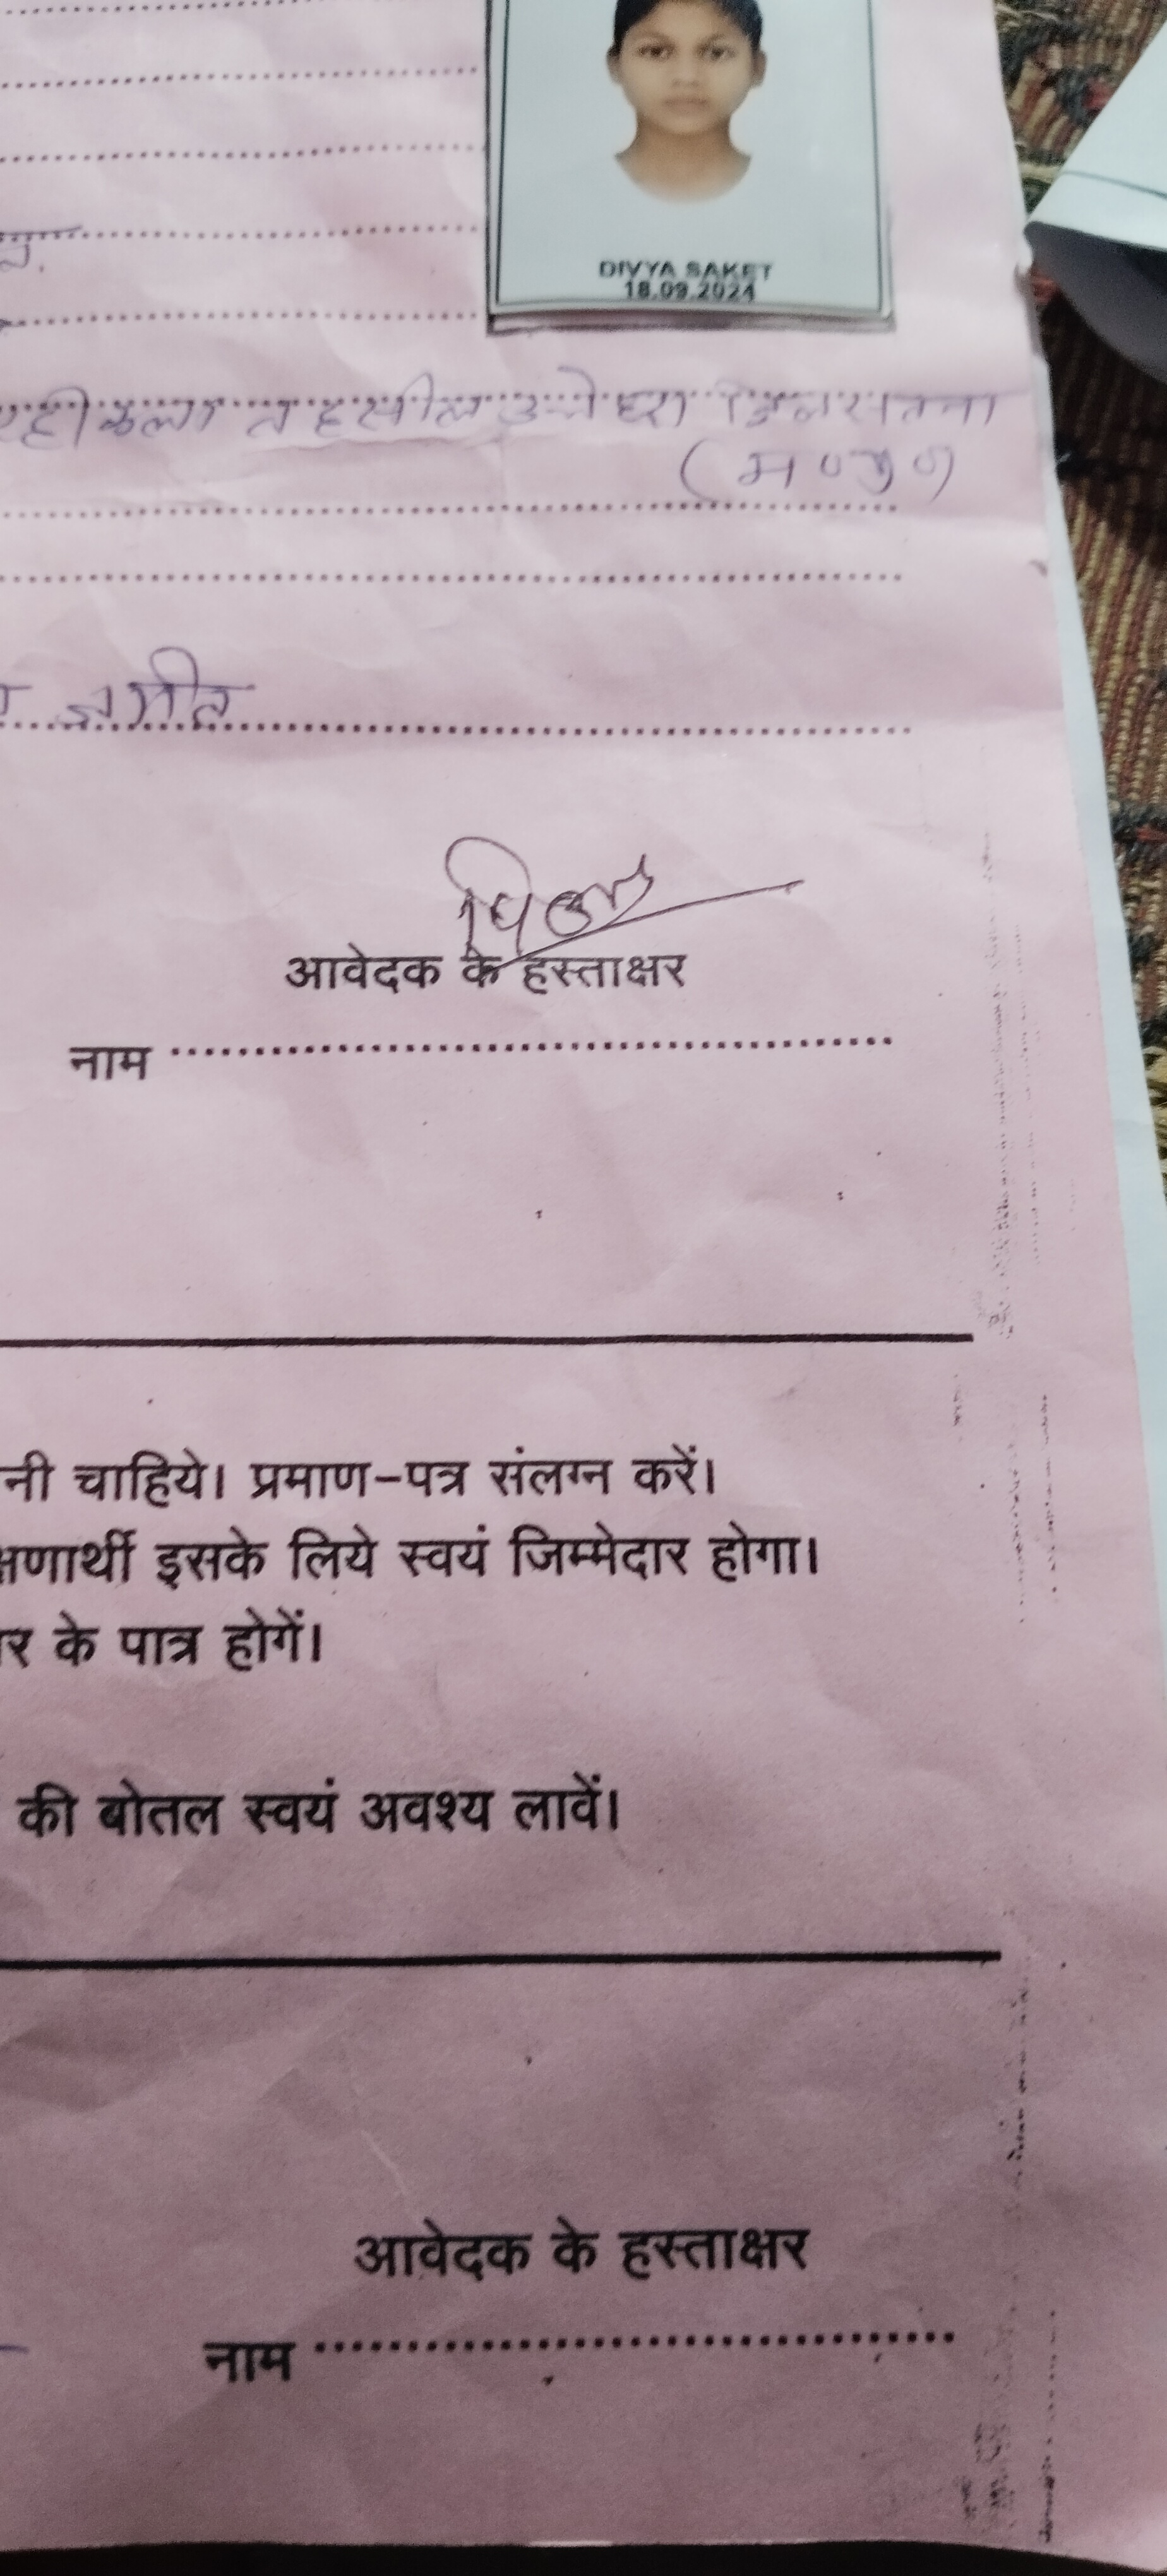 DIVYA SAKET
18.09.2024
कला तहसील उचेहरा जिला सतना
(म०प्र०)
आवेदक के हस्ताक्षर
नाम
नी चाहिये। प्रमाण-पत्र संलग्न करें।
क्षणार्थी इसके लिये स्वयं जिम्मेदार होगा।
र के पात्र होगें।
की बोतल स्वयं अवश्य लावें।
आवेदक के हस्ताक्षर
नाम